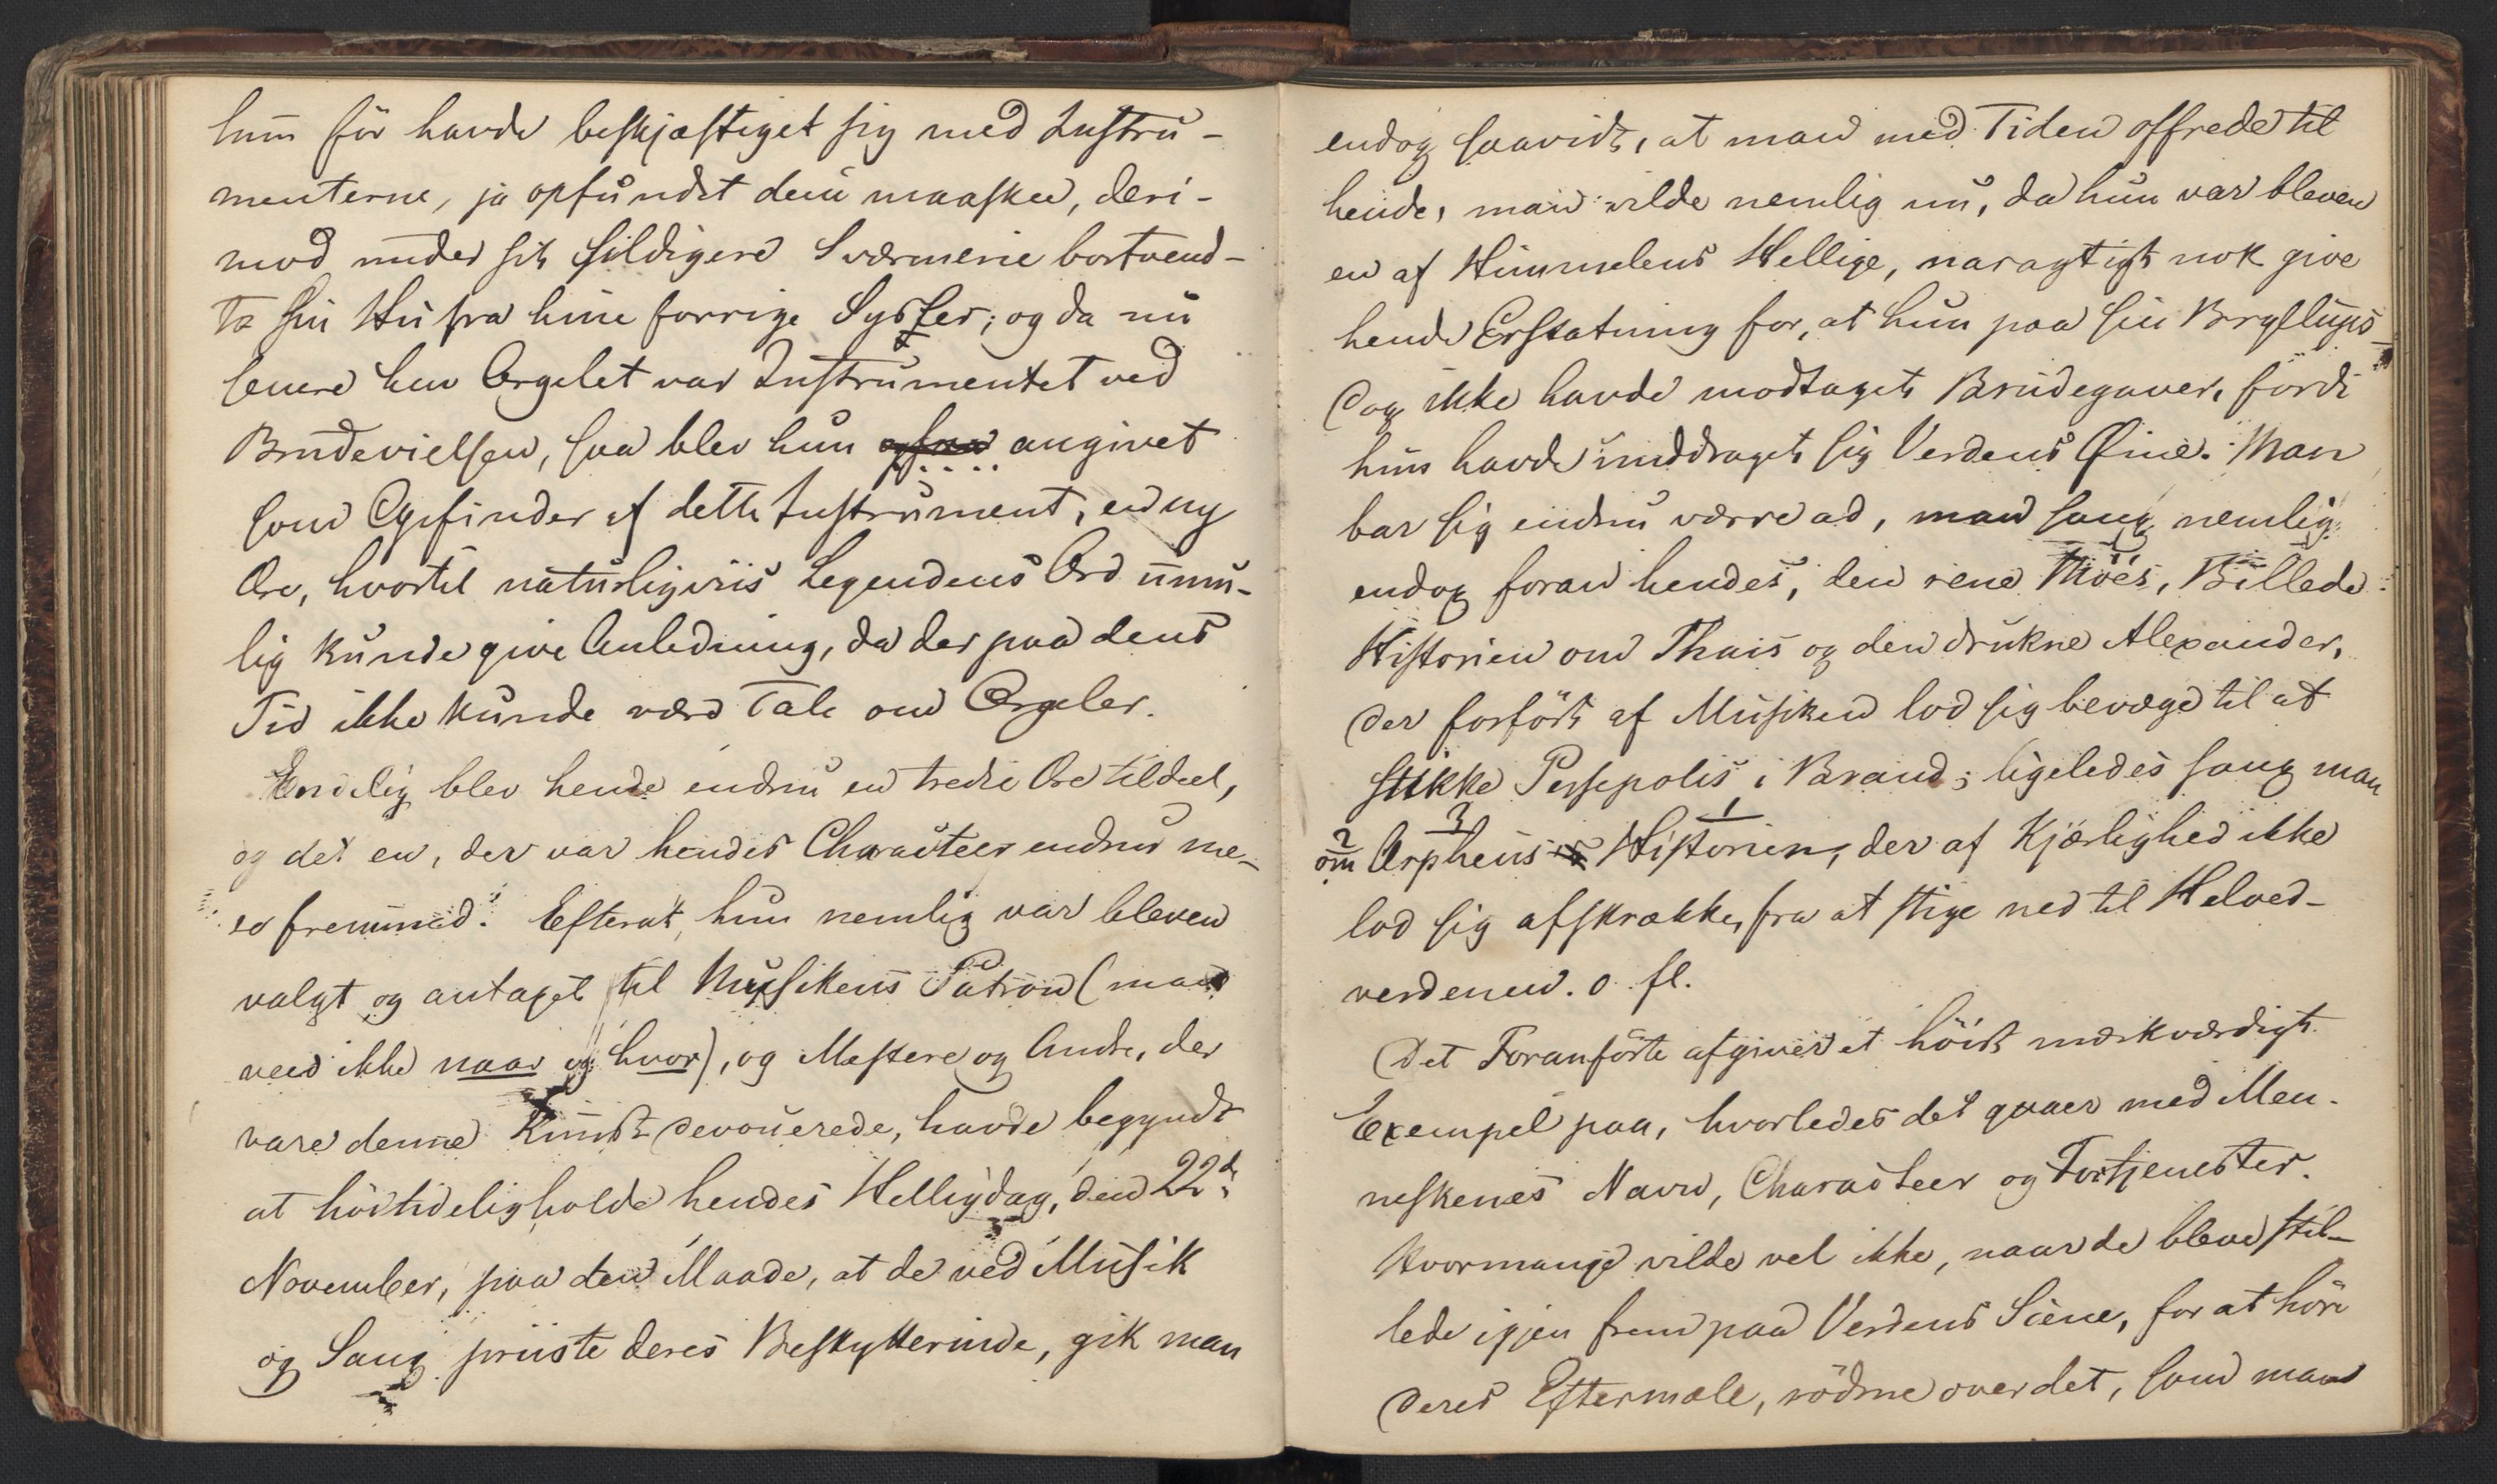 hun för havde beskjæftiget sig med Instru-
menterne, ja opfundet dem maaskee, deri-
mod under sit sildigere Sværmerie bortvend-
te sin Hu fra hine forrige Sysler; og da nu
senere hen Orgelet var Instrumentet ved
Brudevielsen, saa blev hun angivet
som Opfinder af dette Instrument, en ny
Ære, hvortil naturligviis Legendens Ord umu-
lig kunde give Anledning, da der paa dens
Tid ikke kunde være Tale om Orgeler.
Endelig blev hende endnu en tredie Ære tildeel,
og det en, der var hendes Characteer endnu me-
er fremmed. Efterat hun nemlig var bleven
valgt og antaget til Musikens Patron (man
veed ikke naar og hvor), og Mestere og Andre, der
vare denne Kunst devouerede, havde begyndt
at höitideligholde hendes Helligdag, den 22de
November, paa den Maade, at de ved Musik
og Sang priiste deres Beskytterinde, gik man
endog saavidt, at man med Tiden offrede til
hende, man vilde nemlig nu, da hun var bleven
en af Himmelens Hellige, naragtigt nok give
hende Erstatning for, at hun paa sin Bryllups-
Dag ikke havde modtaget Brudegaver, fordi
hun havde unddraget sig Verdens Øine. Man
bar sig endnu værre ad, man sang nemlig
endog foran hendes, den rene Möes, Billede
Historien om Thais og den drukne Alexander,
der forfört af Musiken lod sig bevæge til at
stikke Persepolis i Brand; ligeledes sang man
2 om 3 Orpheus 1 Historien, der af Kjærlighed ikke
lod sig afskrække, fra at stige ned til Helved-
verdenen. o. fl.
Det Foranförte afgiver et höist mærkværdigt
Exempel paa, hvorledes det gaaer med Men-
neskenes Navn, Characteer og Fortjenester.
Hvormange vilde vel ikke, naar de bleve stil-
lede igjen frem paa Verdens Scene, for at höre
deres Eftermæle, rödme over det, som man